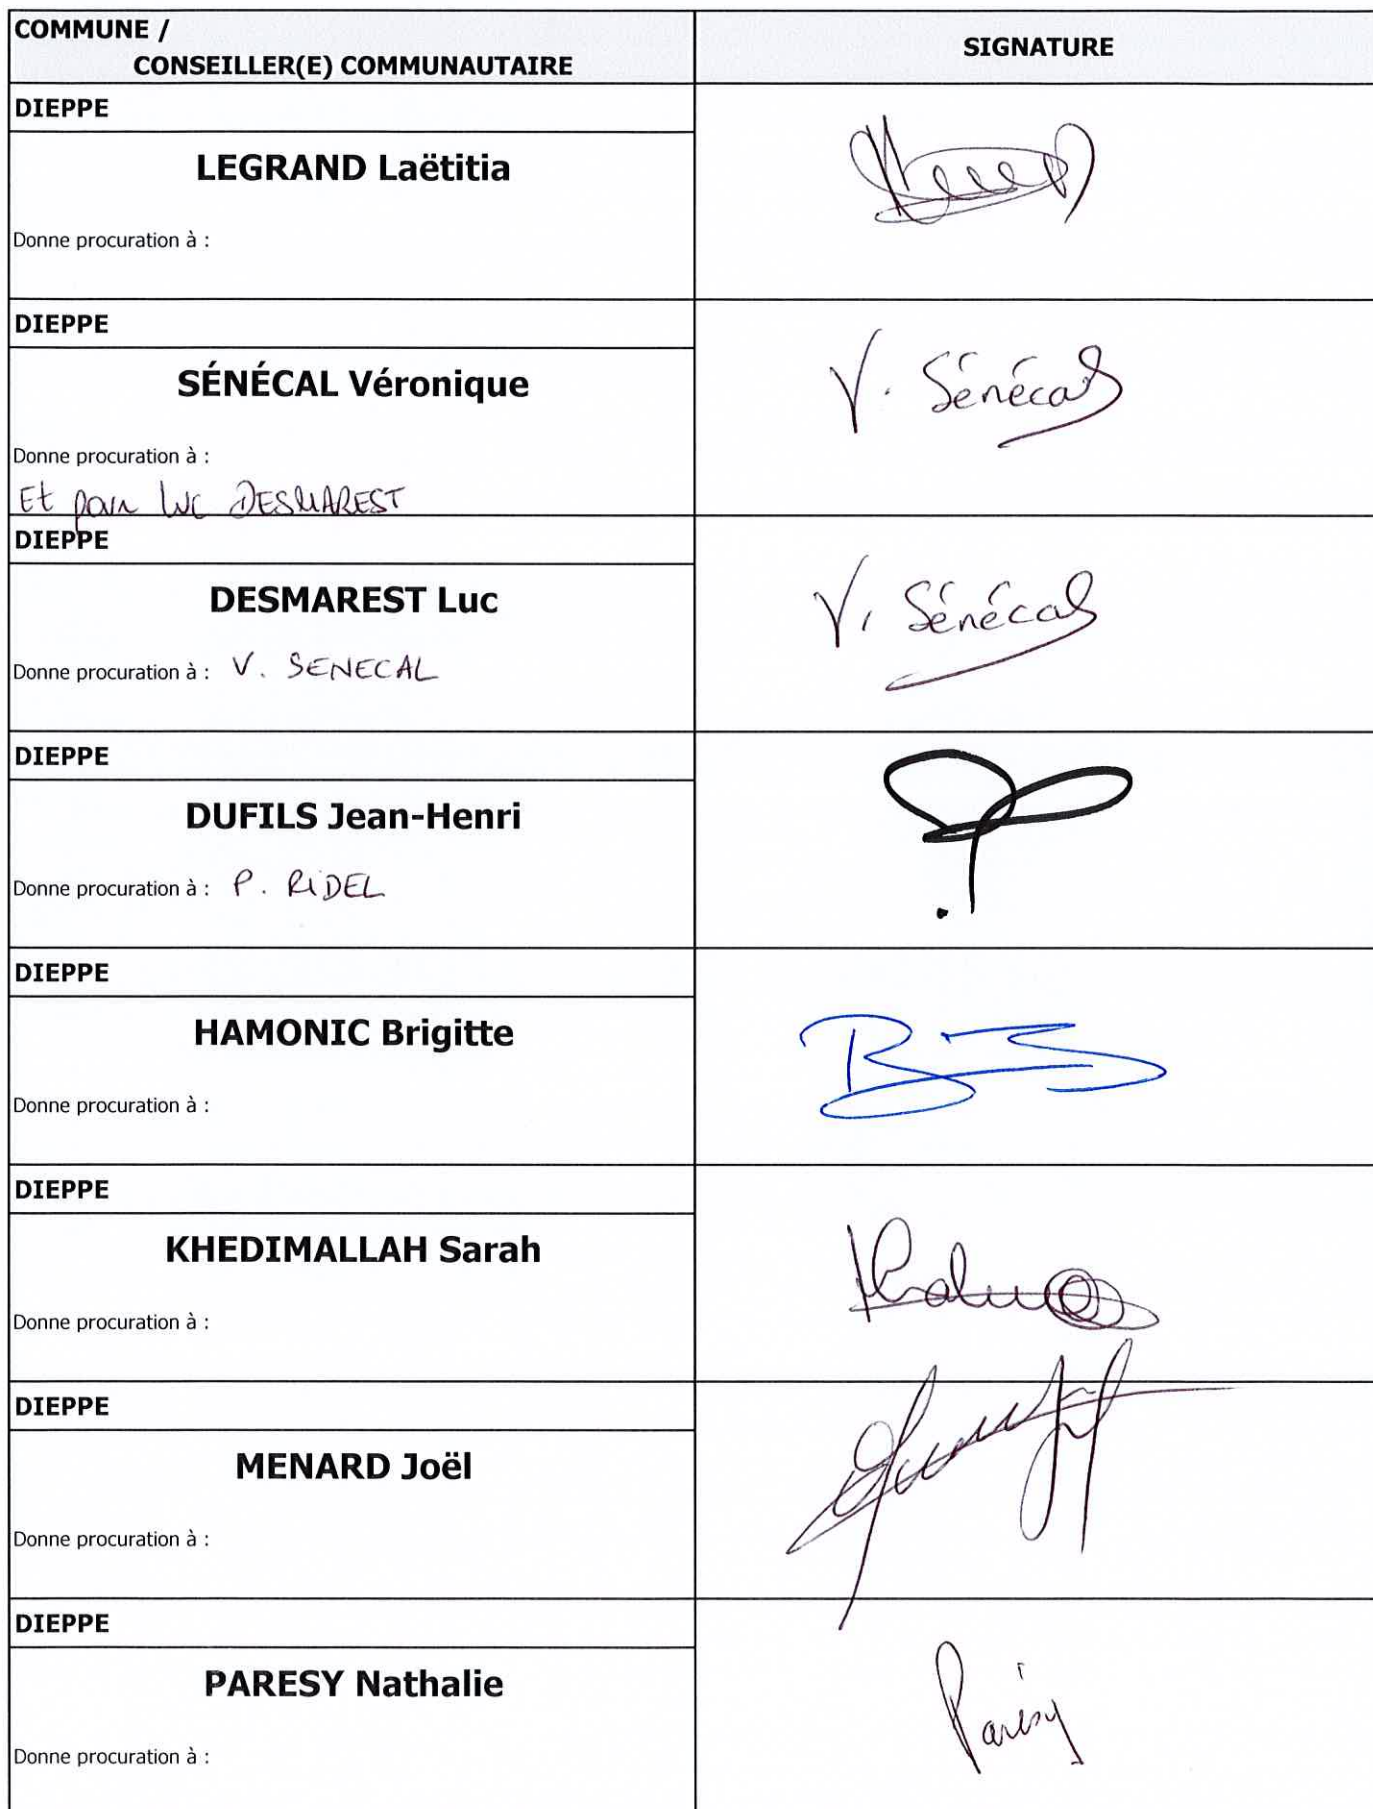 COMMUNE /
CONSEILLER(E) COMMUNAUTAIRE
SIGNATURE
DIEPPE
LEGRAND Laëtitia
Donne procuration à :
DIEPPE
SÉNÉCAL Véronique
V. Sénécal
Donne procuration à :
Et pour Luc DESMAREST
DIEPPE
DESMAREST Luc
V. Sénécal
Donne procuration à : V. SENECAL
DIEPPE
DUFILS Jean-Henri
Donne procuration à : P. RIDEL
DIEPPE
HAMONIC Brigitte
Donne procuration à :
DIEPPE
KHEDIMALLAH Sarah
Donne procuration à :
DIEPPE
MENARD Joël
Donne procuration à :
DIEPPE
PARESY Nathalie
Paresy
Donne procuration à :